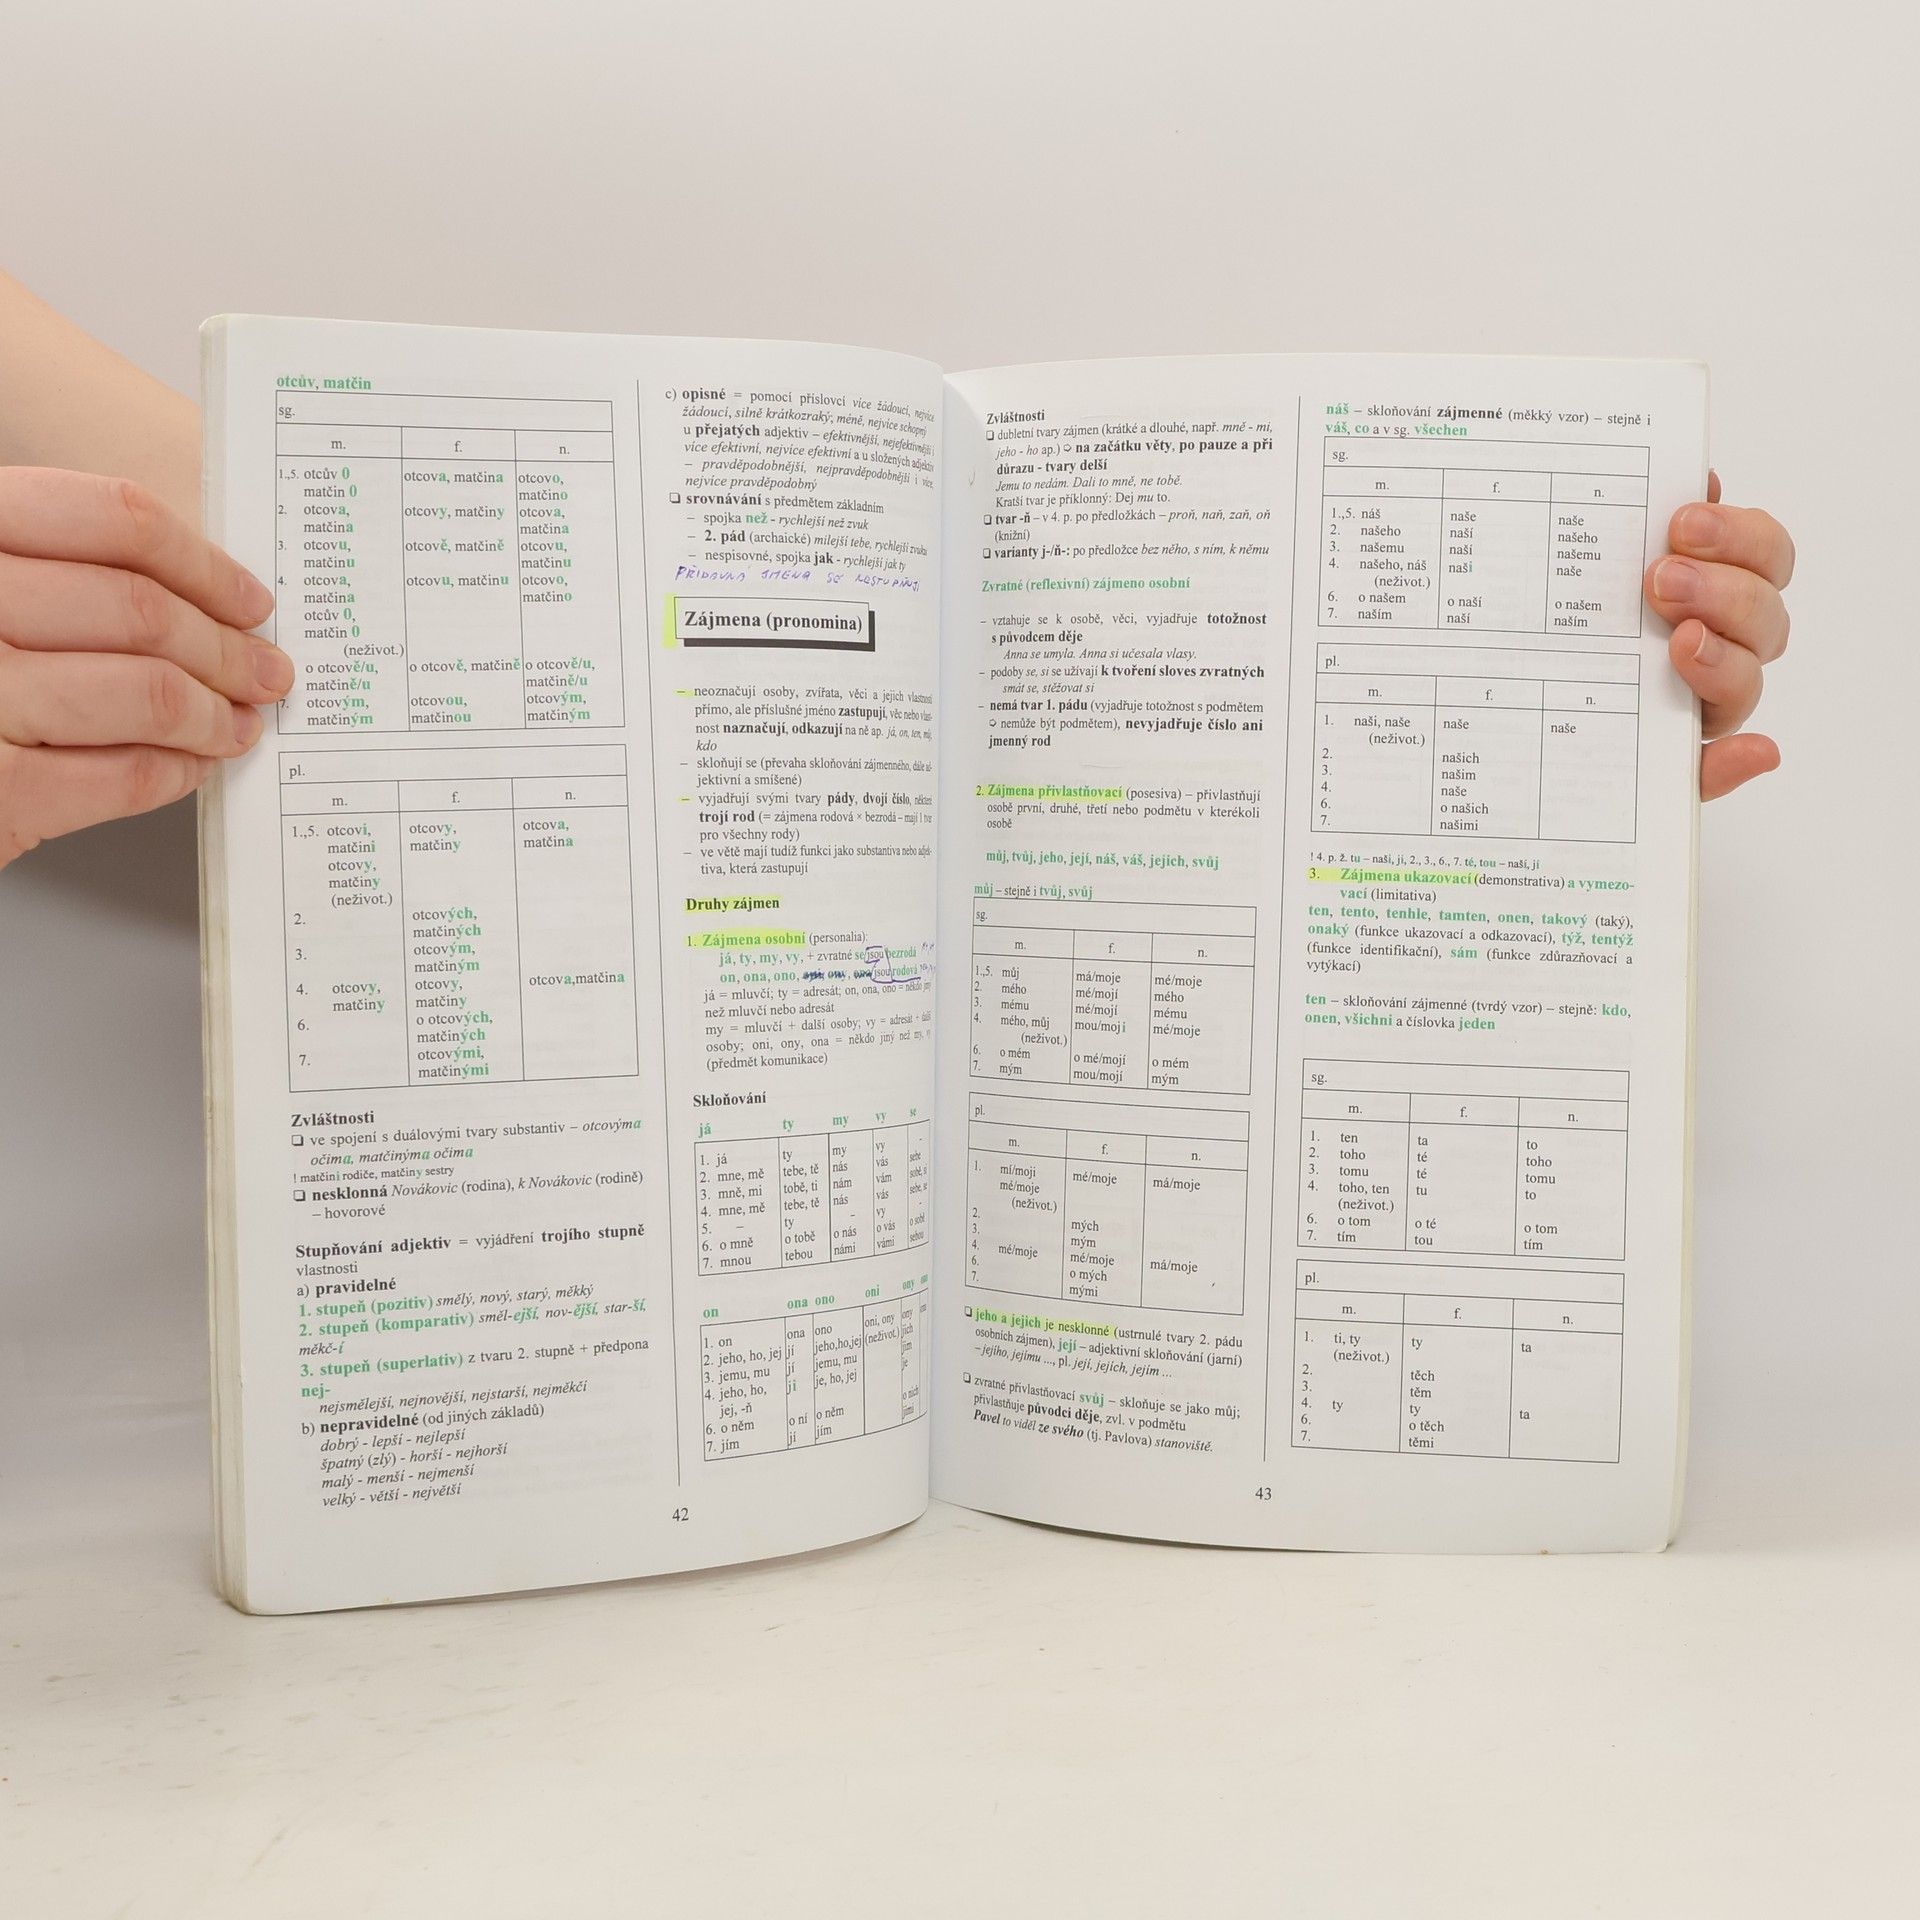 otcův, matčin
sg.
m. f. n.
1.,5. otcův 0 otcova, matčina otcovo,
matčin 0 matčino
2. otcova, otcovy, matčiny otcova,
matčina matčina
3. otcovu, otcově, matčině otcovu,
matčinu matčinu
4. otcova, otcovu, matčinu otcovo,
matčina matčino
otcův 0,
matčin 0
(neživot.)
o otcově/u, o otcově, matčině o otcově/u,
matčině/u matčině/u
7. otcovým, otcovou, otcovým,
matčiným matčinou matčiným
pl.
m. f. n.
1.,5. otcovi, otcovy, otcova,
matčini matčiny matčina
otcovy,
matčiny
(neživot.)
2. otcových,
matčiných
3. otcovým,
matčiným
4. otcovy, otcovy, otcova,matčina
matčiny matčiny
6. o otcových,
matčiných
7. otcovými,
matčinými
Zvláštnosti
❏ ve spojení s duálovými tvary substantiv – otcovýma
očima, matčinýma očima
! matčini rodiče, matčiny sestry
❏ nesklonná Novákovic (rodina), k Novákovic (rodině)
– hovorové
Stupňování adjektiv = vyjádření trojího stupně
vlastnosti
a) pravidelné
1. stupeň (pozitiv) smělý, nový, starý, měkký
2. stupeň (komparativ) směl-ejší, nov-ější, star-ší,
měkč-í
3. stupeň (superlativ) z tvaru 2. stupně + předpona
nej-
nejsmělejší, nejnovější, nejstarší, nejměkčí
b) nepravidelné (od jiných základů)
dobrý - lepší - nejlepší
špatný (zlý) - horší - nejhorší
malý - menší - nejmenší
velký - větší - největší
c) opisné = pomocí příslovcí více žádoucí, nejvíce
žádoucí, silně krátkozraký; méně, nejvíce schopný
u přejatých adjektiv – efektivnější, nejefektivnější i
více efektivní, nejvíce efektivní a u složených adjektiv
– pravděpodobnější, nejpravděpodobnější i více,
nejvíce pravděpodobný
❏ srovnávání s předmětem základním
– spojka než - rychlejší než zvuk
– 2. pád (archaické) milejší tebe, rychlejší zvuku
– nespisovné, spojka jak - rychlejší jak ty
PŘÍDAVNÁ JMÉNA SE NESTUPŇUJ
Zájmena (pronomina)
– neoznačují osoby, zvířata, věci a jejich vlastnosti
přímo, ale příslušné jméno zastupují, věc nebo vlast-
nost naznačují, odkazují na ně ap. já, on, ten, můj,
kdo
– skloňují se (převaha skloňování zájmenného, dále ad-
jektivní a smíšené)
– vyjadřují svými tvary pády, dvojí číslo, některé
trojí rod (= zájmena rodová × bezrodá – mají 1 tvar
pro všechny rody)
– ve větě mají tudíž funkci jako substantiva nebo adjek-
tiva, která zastupují
Druhy zájmen
1. Zájmena osobní (personalia):
já, ty, my, vy, + zvratné se jsou bezrodá
on, ona, ono, oni, ony, ona jsou rodová
já = mluvčí; ty = adresát; on, ona, ono = někdo jiný
než mluvčí nebo adresát
my = mluvčí + další osoby; vy = adresát + další
osoby; oni, ony, ona = někdo jiný než my, vy
(předmět komunikace)
Skloňování
já ty my vy se
1. já ty my vy -
2. mne, mě tebe, tě nás vás sebe
3. mně, mi tobě, ti nám vám sobě, si
4. mne, mě tebe, tě nás vás sebe, se
5. – ty – vy -
6. o mně o tobě o nás o vás o sobě
7. mnou tebou námi vámi sebou
on ona ono oni ony ona
1. on ona ono oni, ony ony
2. jeho, ho, jej jí jeho,ho,jej (neživot.) jich
3. jemu, mu jí jemu, mu jim
4. jeho, ho, ji je, ho, jej je
jej, -ň
6. o něm o ní o něm o nich
7. jím jí jím jimi
42
Zvláštnosti
❏ dubletní tvary zájmen (krátké a dlouhé, např. mně - mi,
jeho - ho ap.) ➲ na začátku věty, po pauze a při
důrazu - tvary delší
Jemu to nedám. Dali to mně, ne tobě.
Kratší tvar je příklonný: Dej mu to.
❏ tvar -ň – v 4. p. po předložkách – proň, naň, zaň, oň
(knižní)
❏ varianty j-/ň-: po předložce bez něho, s ním, k němu
Zvratné (reflexivní) zájmeno osobní
– vztahuje se k osobě, věci, vyjadřuje totožnost
s původcem děje
Anna se umyla. Anna si učesala vlasy.
– podoby se, si se užívají k tvoření sloves zvratných
smát se, stěžovat si
– nemá tvar 1. pádu (vyjadřuje totožnost s podmětem
➲ nemůže být podmětem), nevyjadřuje číslo ani
jmenný rod
2. Zájmena přivlastňovací (posesiva) – přivlastňují
osobě první, druhé, třetí nebo podmětu v kterékoli
osobě
můj, tvůj, jeho, její, náš, váš, jejich, svůj
můj – stejně i tvůj, svůj
sg.
m. f. n.
1.,5. můj má/moje mé/moje
2. mého mé/mojí mého
3. mému mé/mojí mému
4. mého, můj mou/moji mé/moje
(neživot.)
6. o mém o mé/mojí o mém
7. mým mou/mojí mým
pl.
m. f. n.
1. mí/moji mé/moje má/moje
mé/moje
(neživot.)
2. mých
3. mým
4. mé/moje mé/moje má/moje
6. o mých
7. mými
❏ jeho a jejich je nesklonné (ustrnulé tvary 2. pádu
osobních zájmen), její – adjektivní skloňování (jarní)
– jejího, jejímu ..., pl. její, jejích, jejím ...
❏ zvratné přivlastňovací svůj – skloňuje se jako můj;
přivlastňuje původci děje, zvl. v podmětu
Pavel to viděl ze svého (tj. Pavlova) stanoviště.
náš – skloňování zájmenné (měkký vzor) – stejně i
váš, co a v sg. všechen
sg.
m. f. n.
1.,5. náš naše naše
2. našeho naší našeho
3. našemu naší našemu
4. našeho, náš naši naše
(neživot.)
6. o našem o naší o našem
7. naším naší naším
pl.
m. f. n.
1. naši, naše naše naše
(neživot.)
2. našich
3. našim
4. naše
6. o našich
7. našimi
! 4. p. ž. tu – naši, ji, 2., 3., 6., 7. té, tou – naší, jí
3. Zájmena ukazovací (demonstrativa) a vymezo-
vací (limitativa)
ten, tento, tenhle, tamten, onen, takový (taký),
onaký (funkce ukazovací a odkazovací), týž, tentýž
(funkce identifikační), sám (funkce zdůrazňovací a
vytýkací)
ten – skloňování zájmenné (tvrdý vzor) – stejně: kdo,
onen, všichni a číslovka jeden
sg.
m. f. n.
1. ten ta to
2. toho té toho
3. tomu té tomu
4. toho, ten tu to
(neživot.)
6. o tom o té o tom
7. tím tou tím
pl.
m. f. n.
1. ti, ty ty ta
(neživot.)
2. těch
3. těm
4. ty ty ta
6. o těch
7. těmi
43